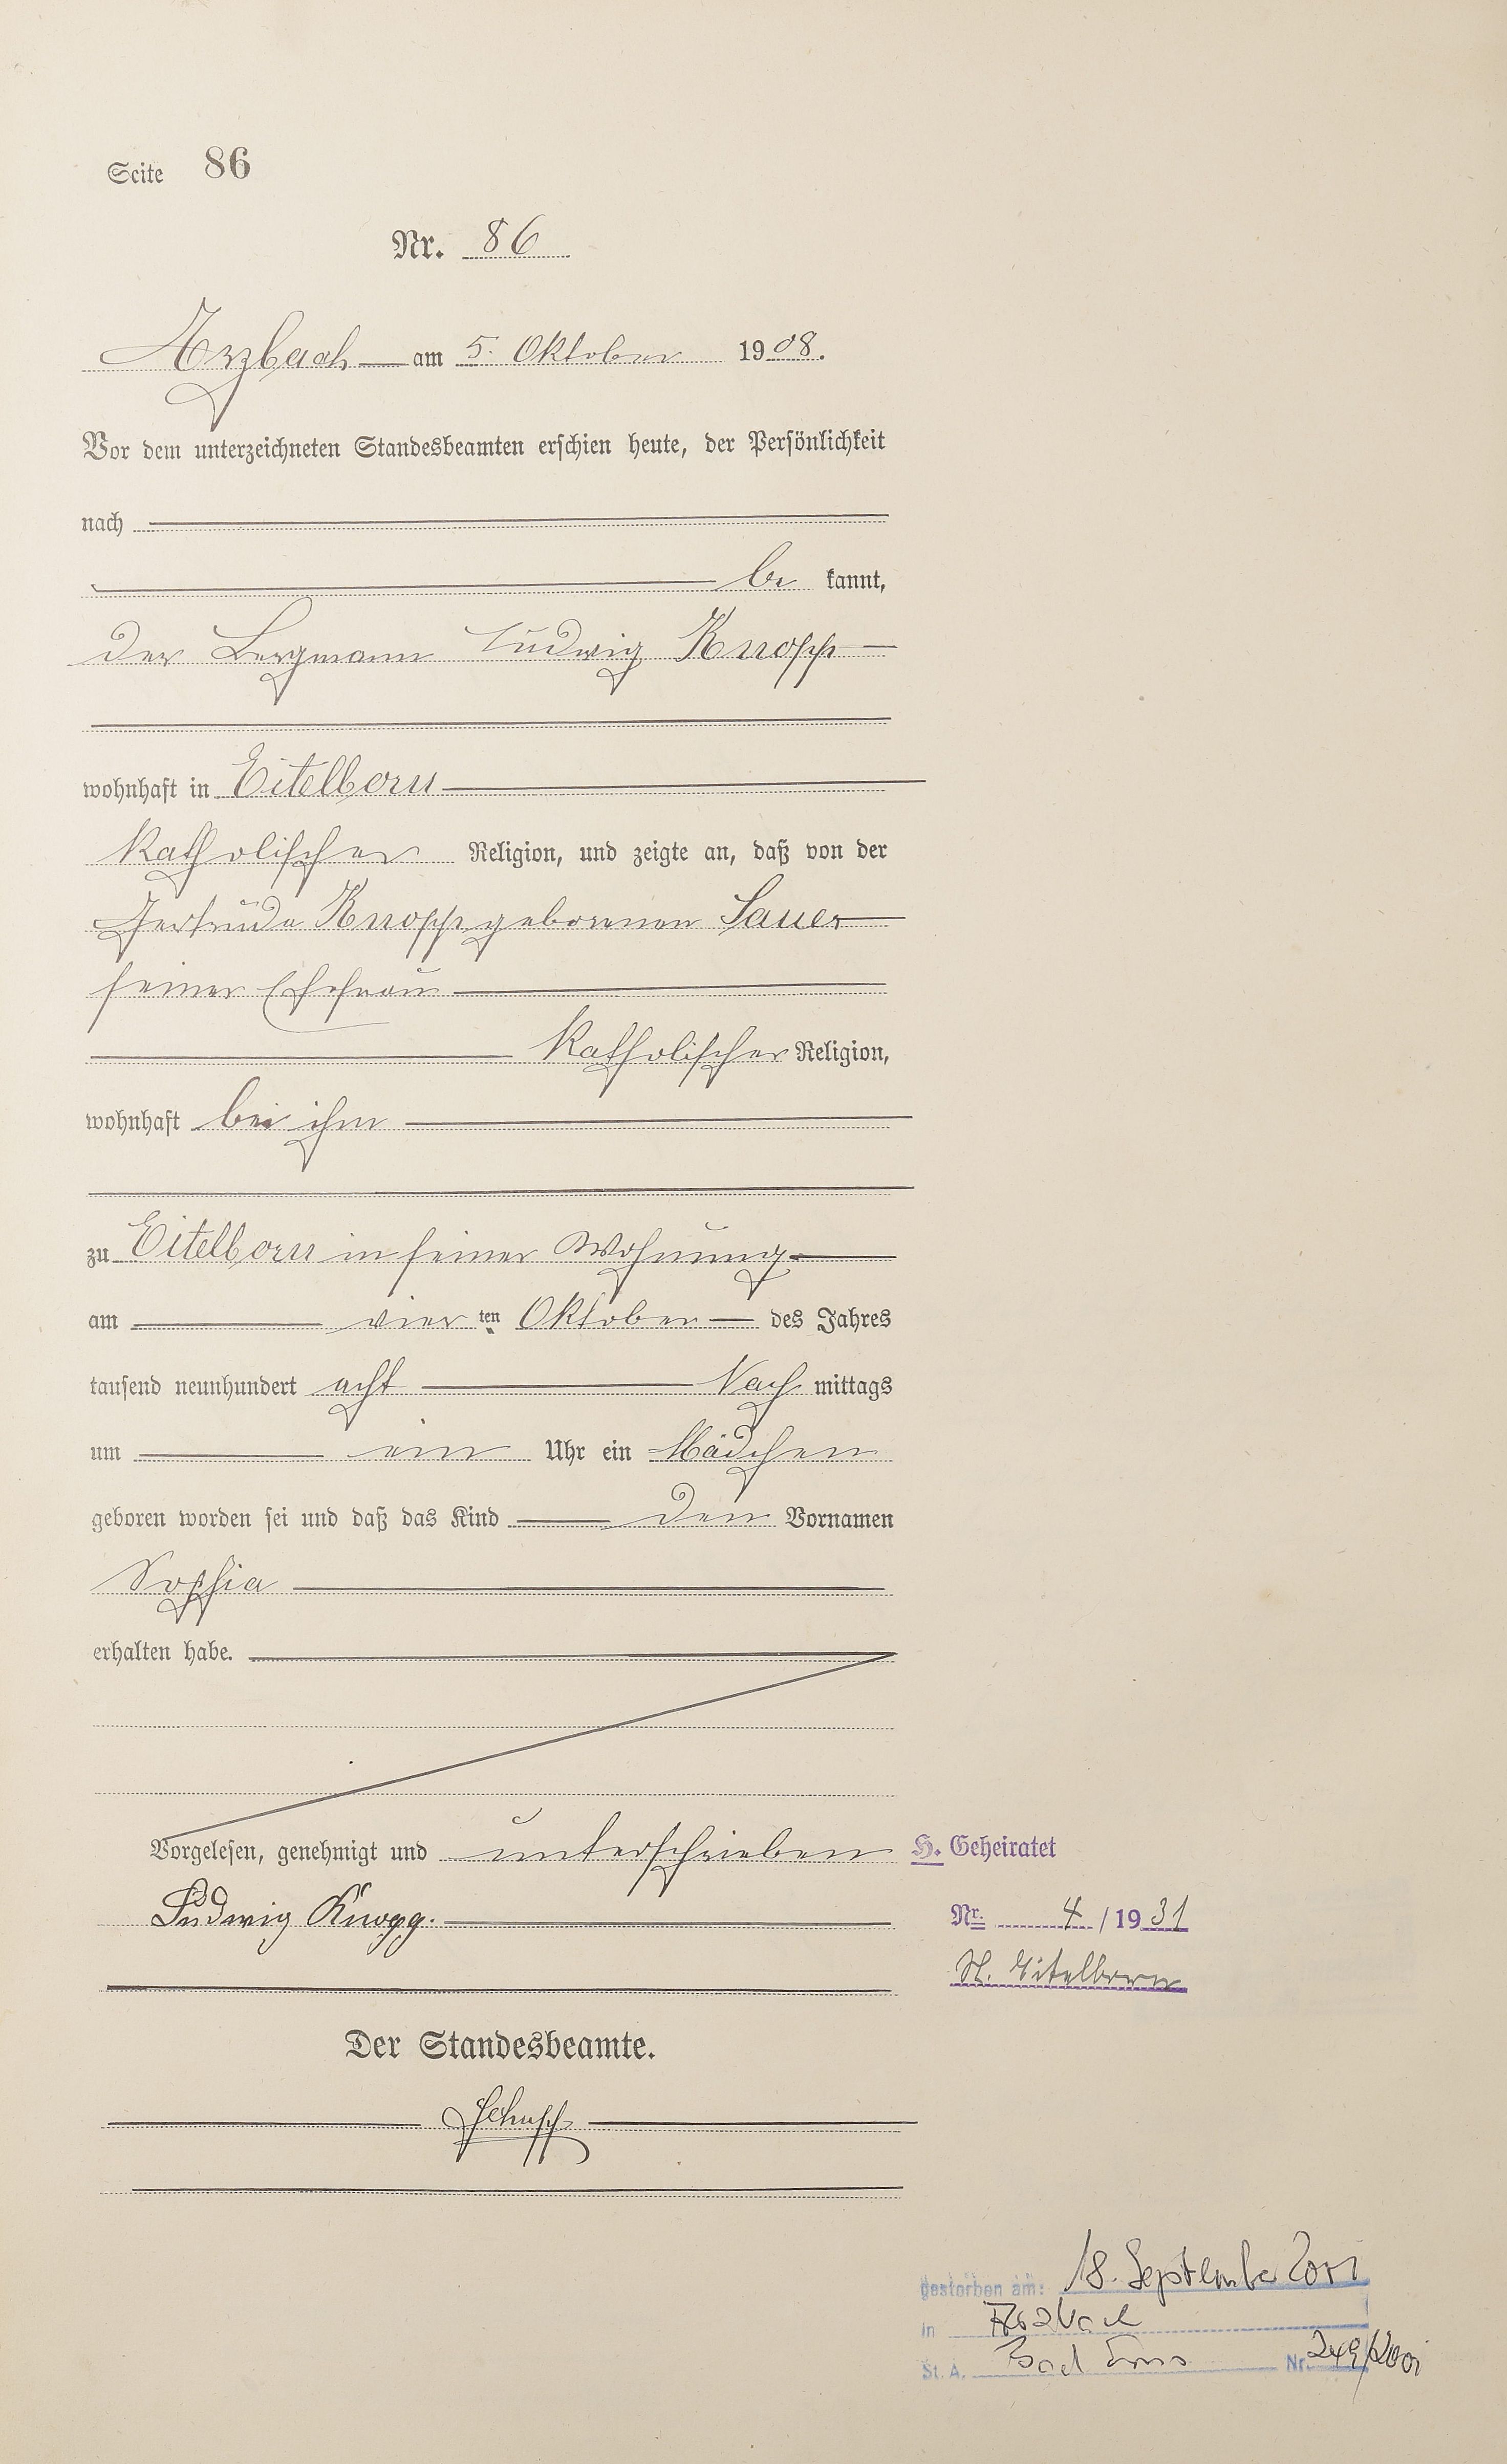 Seite 86
Nr. 86
Arzbach am 5. Oktober 1908.
Vor dem unterzeichneten Standesbeamten erschien heute, der Persönlichkeit
nach
be kannt,
der Bergmann Ludwig Knopp
wohnhaft in Eitelborn
katholischer Religion, und zeigte an, daß von der
Gertruda Knopp geborenen Sauer
seiner Ehefrau
katholischer Religion,
wohnhaft bei ihm
zu Eitelborn in seiner Wohnung
am vier ten Oktober des Jahres
tausend neunhundert acht Nach mittags
um ein Uhr ein Mädchen
geboren worden sei und daß das Kind den Vornamen
Sophia
erhalten habe.
Vorgelesen, genehmigt und unterschrieben
Ludwig Knopp.
Der Standesbeamte.
H. Geheiratet
Nr. 4 / 1931
St. Eitelborn
gestorben am: 18. September 2001
in Arzbach
St. A. Bad Ems Nr. 249/2001